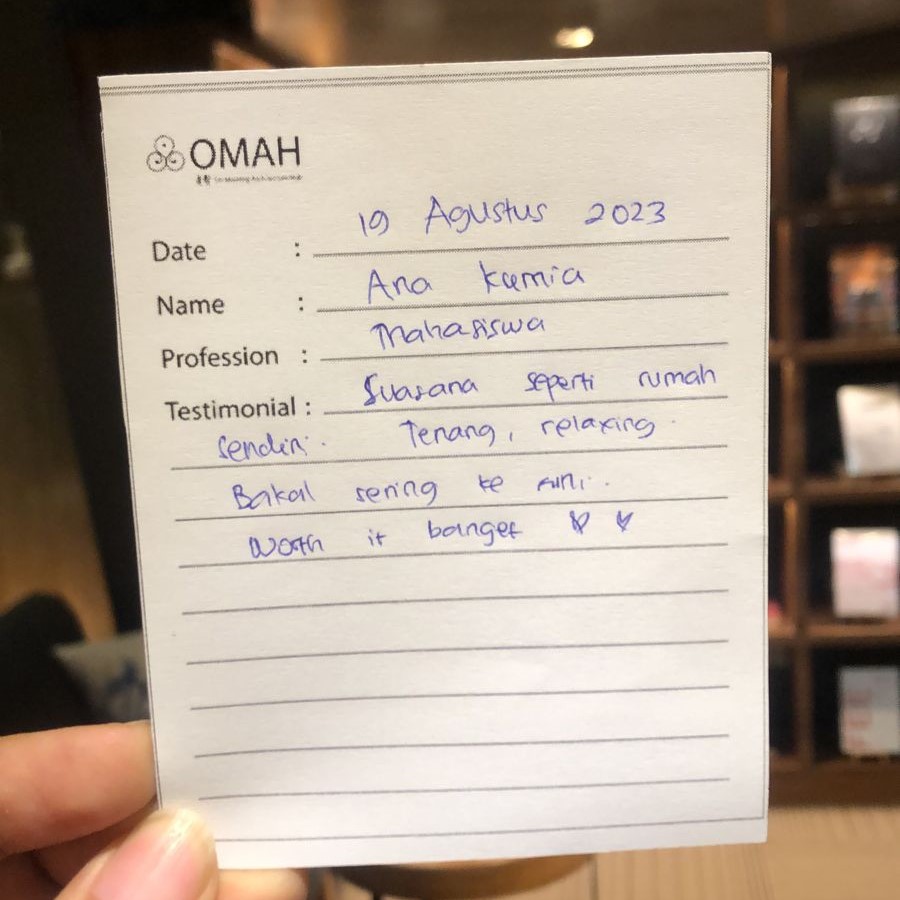 OMAH
Date : 19 Agustus 2023
Name : Ana Kurnia
Profession : Mahasiswa
Testimonial : Suasana seperti rumah
sendiri. Tenang, relaxing.
Bakal sering ke sini.
Worth it banget